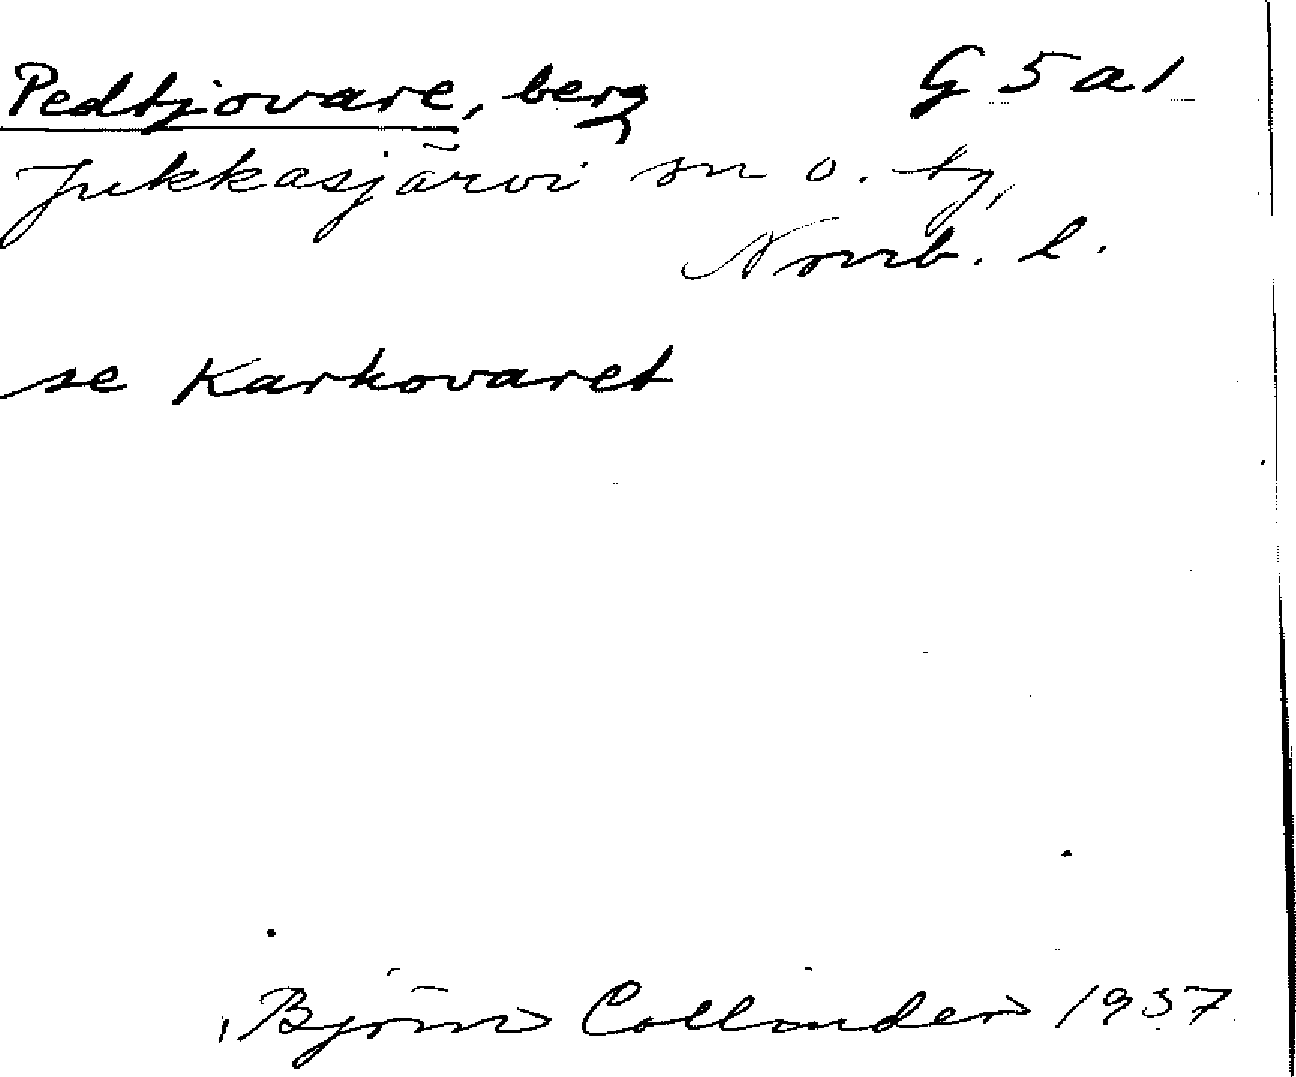 Pedtjovare, berg G 5 a 1
Jukkasjärvi sn o. tg,
Norrb. l.
se Karkovaret
Björn Collinder 1937